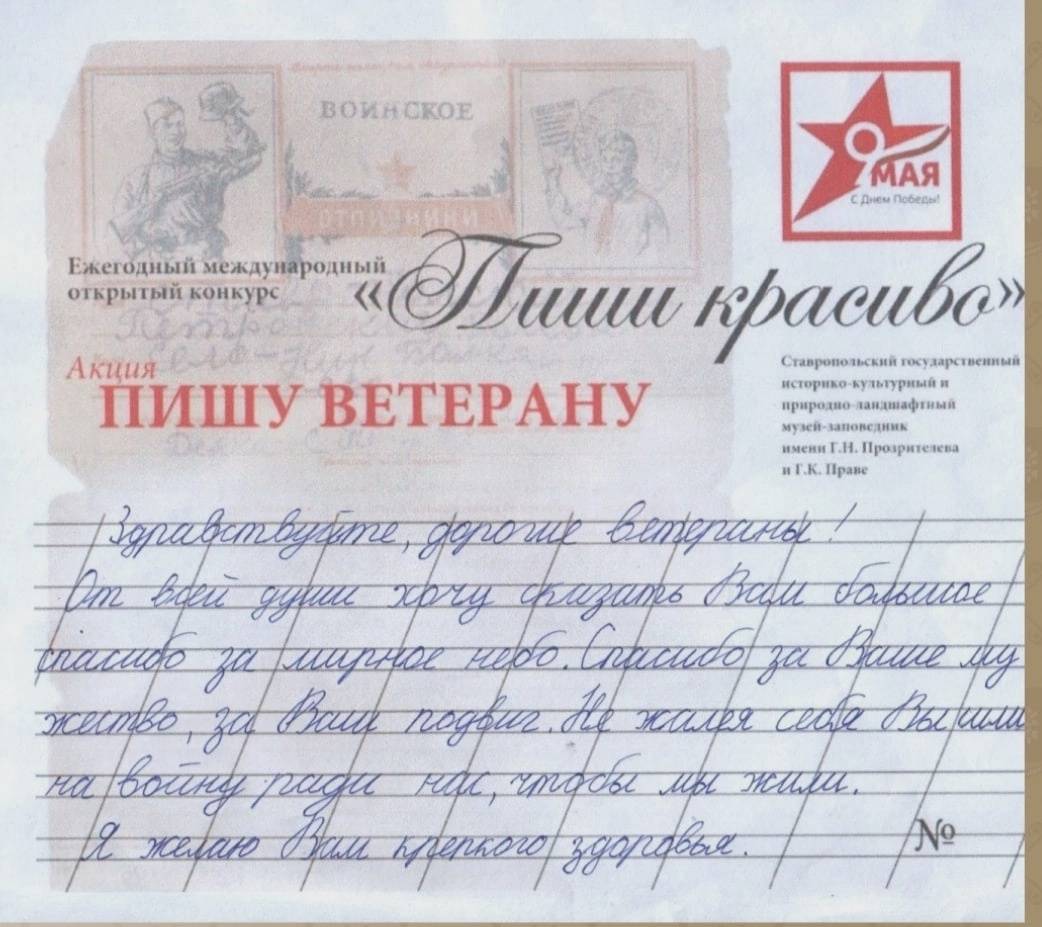 ВОИНСКОЕ
9 МАЯ
С Днем Победы!
Ежегодный международный
открытый конкурс
«Пиши красиво»
Акция
ПИШУ ВЕТЕРАНУ
Ставропольский государственный
историко-культурный и
природно-ландшафтный
музей-заповедник
имени Г.Н. Прозрителева
и Г.К. Праве
Здравствуйте, дорогие ветераны!
От всей души хочу сказать Вам большое
спасибо за мирное небо. Спасибо за Ваше му
жество, за Ваш подвиг. Не жалея себя Вы шли
на войну ради нас, чтобы мы жили.
Я желаю Вам крепкого здоровья.
№